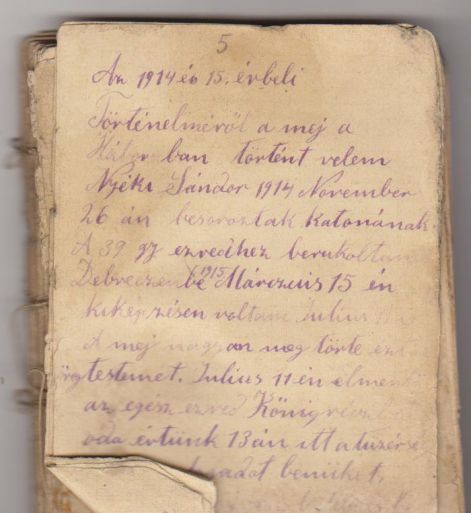 5
Az 1914 és 15. évbeli
Történelméröl a mej a
Hábor ban történt velem
Nyéki Sándor 1914 November
26 án besoroztak katonának.
A 39 gy ezredhez berukoltam
Debreczenbe 1915 Márczius 15 én
kiképzésen voltam Julius
A mej nagyon meg törte
testemet. Julius 11 én elment
az egész ezred
oda értünk 13 án itt a
benüket.